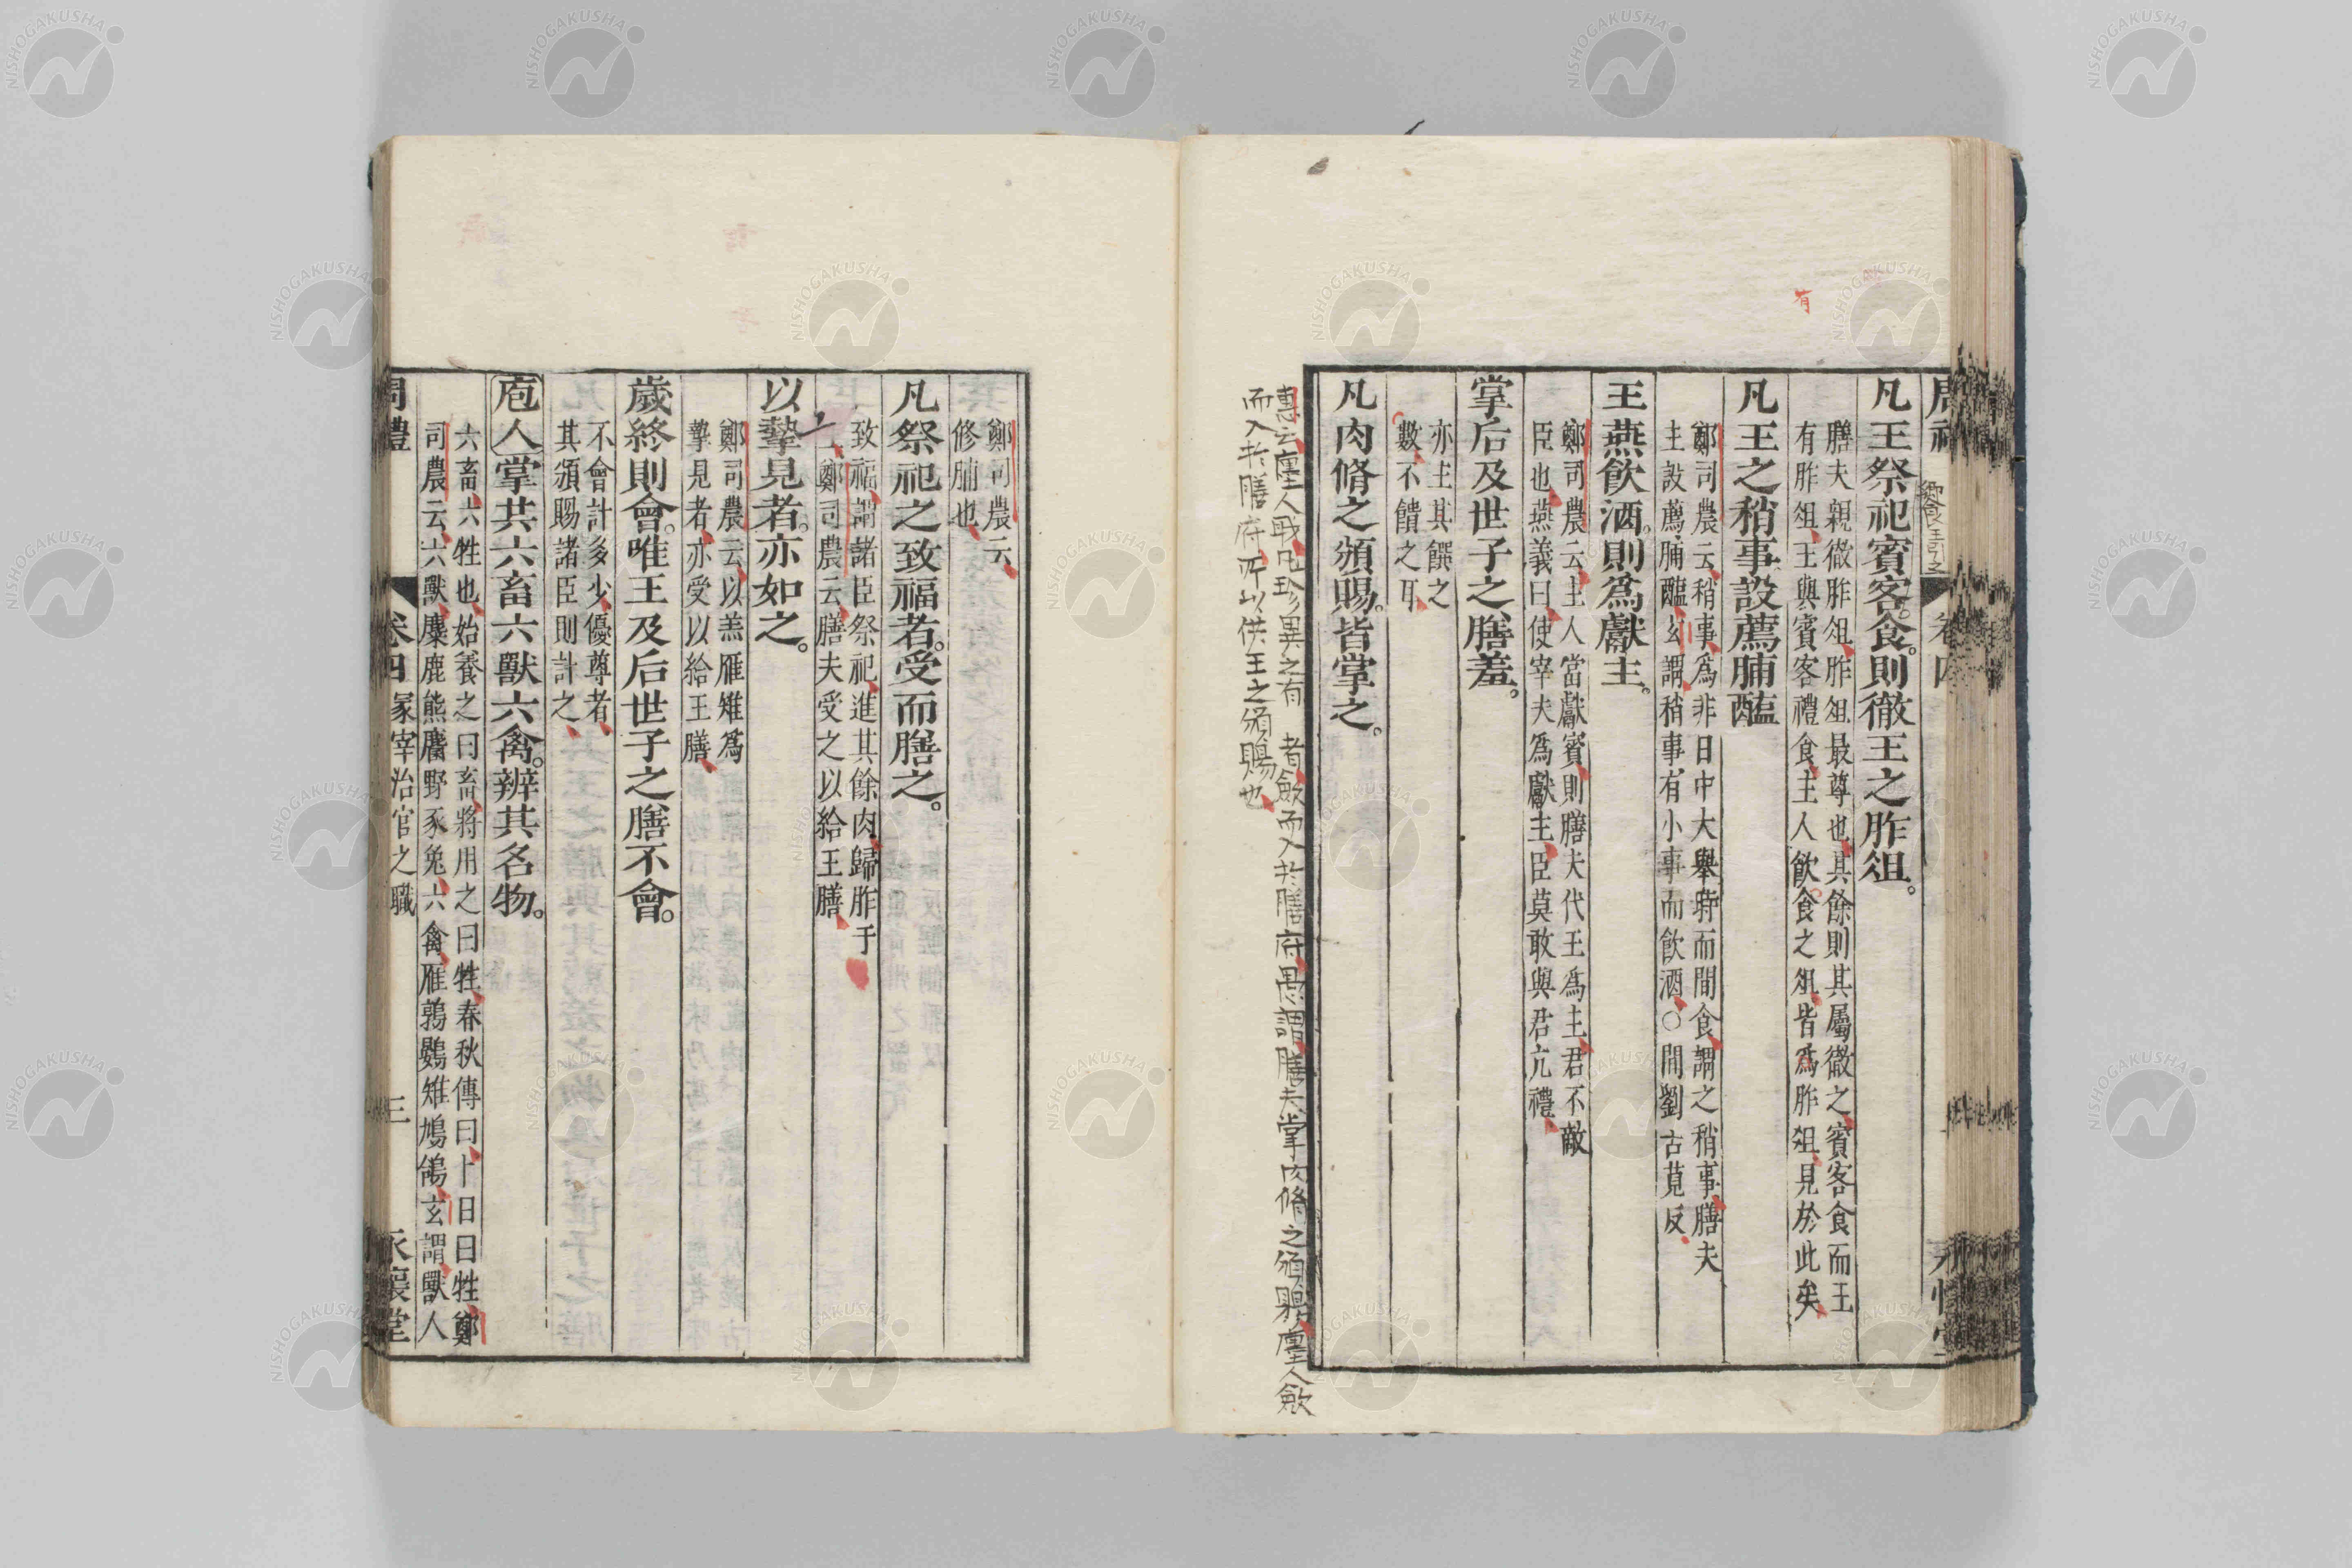 凡王祭祀賓客食則徹王之胙俎。
膳夫親徹胙俎胙俎最尊也其餘則其屬徹之賓客食而王
有胙俎王與賓客禮食主人飲食之俎皆爲胙俎見於此矣
凡王之稍事設薦脯醢
鄭司農云稍事爲非日中大舉時而間食謂之稍事膳夫
主設薦脯醢玄謂稍事有小事而飲酒○間劉古莧反
王燕飲酒。則爲獻主。
鄭司農云主人當獻賓則膳夫代王爲主君不敵
臣也燕義曰使宰夫爲獻主臣莫敢與君亢禮
掌后及世子之膳羞。
亦主其饌之
數不饋之耳
凡肉脩之頒賜。皆掌之。
者斂而入於膳府愚謂膳夫掌肉脩之頒賜廛人斂
而入於膳府所以供王之頒賜也
鄭司農云
脩脯也
凡祭祀之致福者。受而膳之。
致福謂諸臣祭祀進其餘肉歸胙于
王鄭司農云膳夫受之以給王膳
以摯見者。亦如之。
鄭司農云以羔雁雉爲
摯見者亦受以給王膳
歲終則會。唯王及后世子之膳不會。
不會計多少優尊者
其頒賜諸臣則計之
庖人掌共六畜六獸六禽。辨其名物。
六畜六牲也始養之曰畜將用之曰牲春秋傳曰卜日曰牲鄭
司農云六獸麋鹿熊麕野豕兔六禽雁鶉鷃雉鳩鴿玄謂獸人
周禮 卷四 冢宰治官之職 三 永懷堂